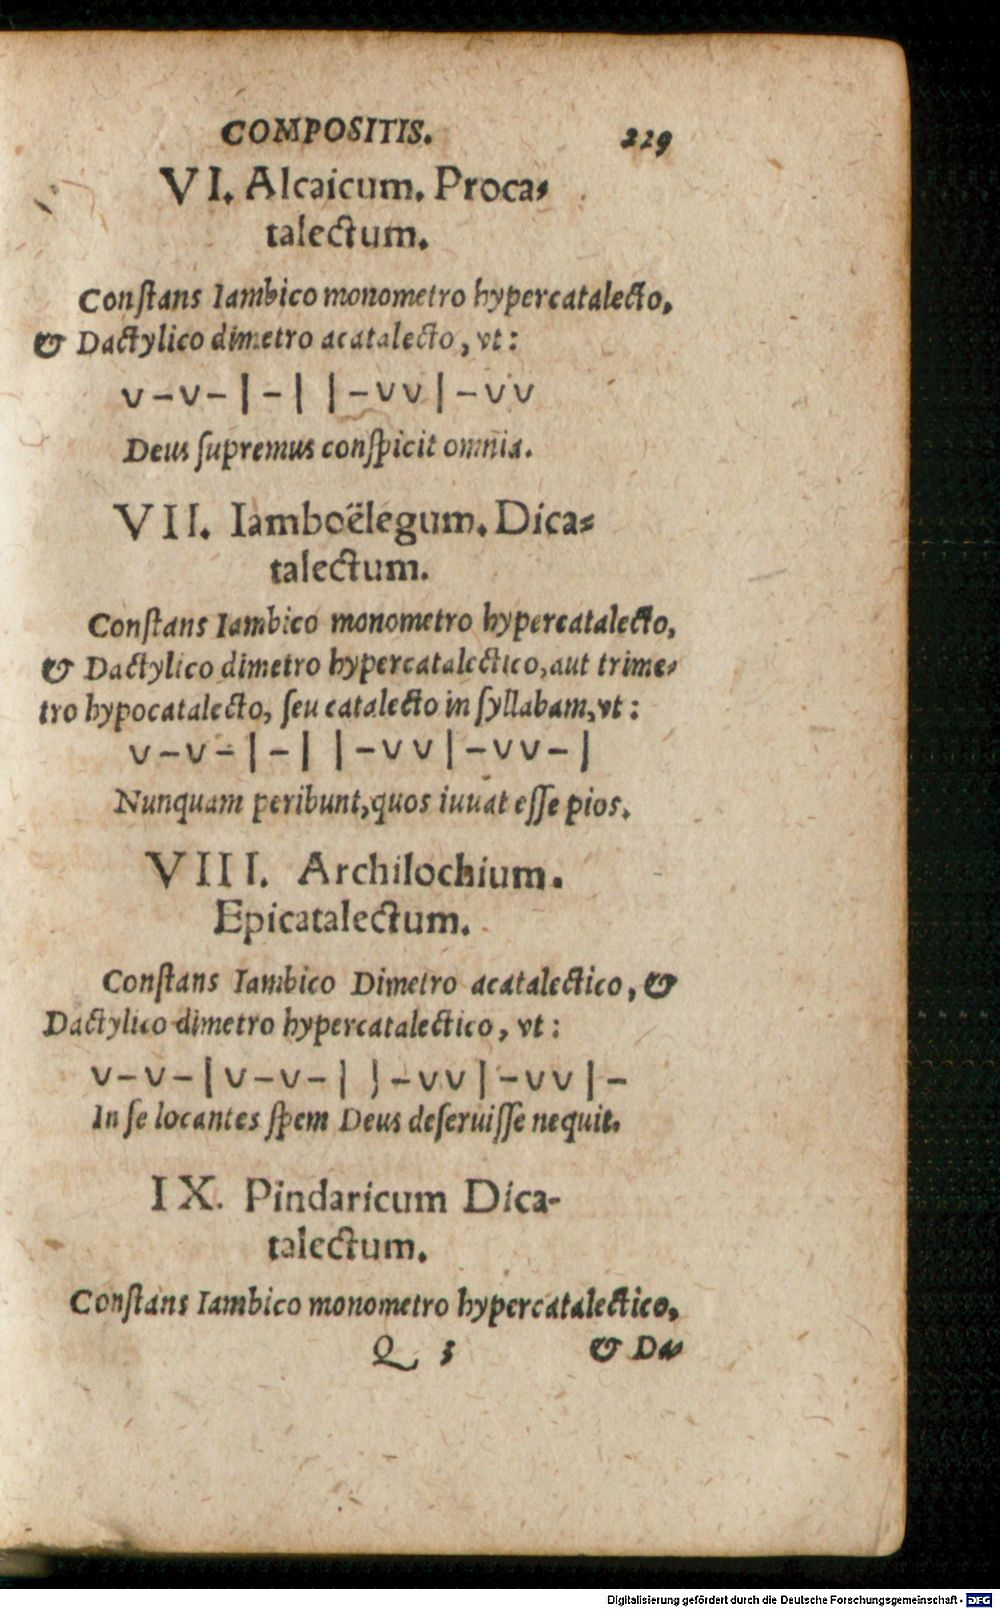 COMPOSITIS. 229
VI. Alcaicum. Proca-
talectum.
Conſtans Iambico monometro hypercatalecto,
& Dactylico dimetro acatalecto, vt:
∪–∪–|–| |–∪∪|–∪∪
Deus ſupremus conſpicit omnia.
VII. Iamboëlegum. Dica-
talectum.
Conſtans Iambico monometro hypercatalecto,
& Dactylico dimetro hypercatalectico, aut trime-
tro hypocatalecto, ſeu catalecto in ſyllabam, vt:
∪–∪–|–| |–∪∪|–∪∪–|
Nunquam peribunt, quos iuuat eſſe pios.
VIII. Archilochium.
Epicatalectum.
Conſtans Iambico Dimetro acatalectico, &
Dactylico dimetro hypercatalectico, vt:
∪–∪–|∪–∪–| |–∪∪|–∪∪|–
In ſe locantes ſpem Deus deſeruiſſe nequit.
IX. Pindaricum Dica-
talectum.
Conſtans Iambico monometro hypercatalectico,
Q 3 & Da-
Digitalisierung gefördert durch die Deutsche Forschungsgemeinschaft - DFG